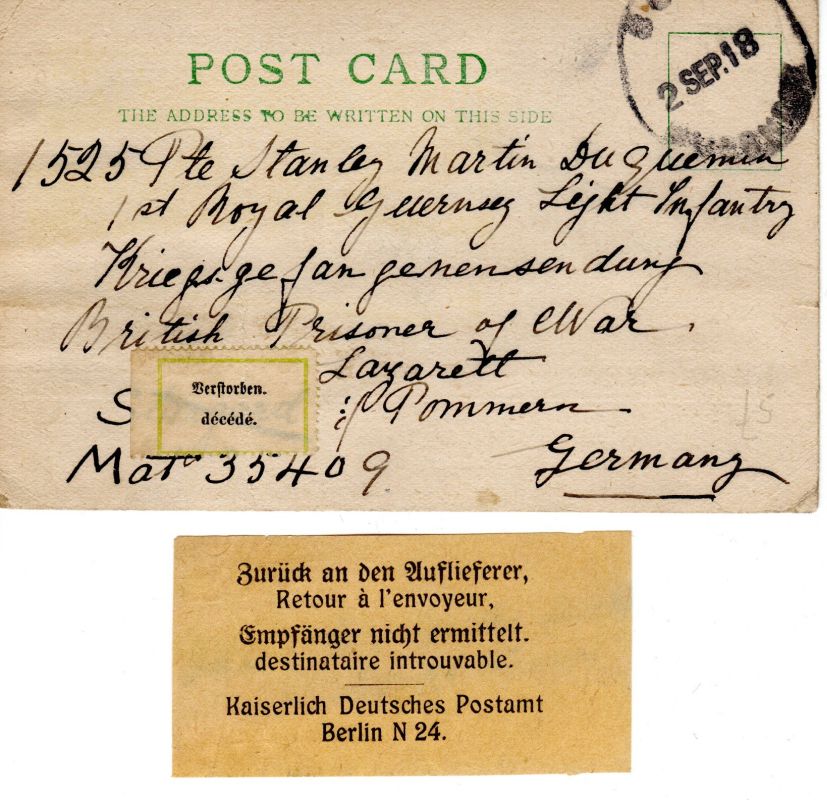 POST CARD
THE ADDRESS TO BE WRITTEN ON THIS SIDE
2 SEP.18
1525 Pte Stanley Martin Duquemin
1st Royal Guernsey Light Infantry
Kriegsgefangenensendung
British Prisoner of War
Lazarett
Pommern
Verstorben.
décédé.
Mat° 35409
Germany
£5
Zurück an den Auflieferer,
Retour à l'envoyeur,
Empfänger nicht ermittelt.
destinataire introuvable.
Kaiserlich Deutsches Postamt
Berlin N 24.